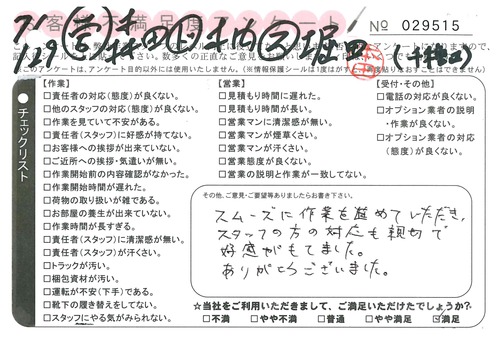 お客様不満足度アンケート
No 029515
7/29 営 日 ス 堀田
※このアンケートは、アンケート目的以外には使用いたしません。(※情報保護シールは1度はがすと再度貼りなおすことはできません)
チェックリスト
【作業】
□責任者の対応(態度)が良くない。
□他のスタッフの対応(態度)が良くない。
□作業を見ていて不安がある。
□責任者(スタッフ)に好感が持てない。
□お客様への挨拶が出来ていない。
□ご近所への挨拶・気遣いが無い。
□作業開始前の内容確認がなかった。
□作業開始時間が遅れた。
□荷物の取り扱いが雑である。
□お部屋の養生が出来ていない。
□作業時間が長すぎる。
□責任者(スタッフ)に清潔感が無い。
□責任者(スタッフ)が汗くさい。
□トラックが汚い。
□梱包資材が汚い。
□運転が不安(下手)である。
□靴下の履き替えをしてない。
□スタッフにやる気がみられない。
【営業】
□見積もり時間に遅れた。
□見積もり時間が長い。
□営業マンに清潔感が無い。
□営業マンが煙草くさい。
□営業マンが汗くさい。
□営業態度が良くない。
□営業の説明と作業が一致してない。
【受付・その他】
□電話の対応が良くない。
□オプション業者の説明・作業が良くない。
□オプション業者の対応(態度)が良くない。
その他、ご意見・ご要望等ありましたらお書き下さい。
スムーズに作業を進めていただき、
スタッフの方の対応も親切で
好感がもてました。
ありがとうございました。
☆当社をご利用いただきまして、ご満足いただけたでしょうか?
□不満 □やや不満 □普通 □やや満足 ☑満足